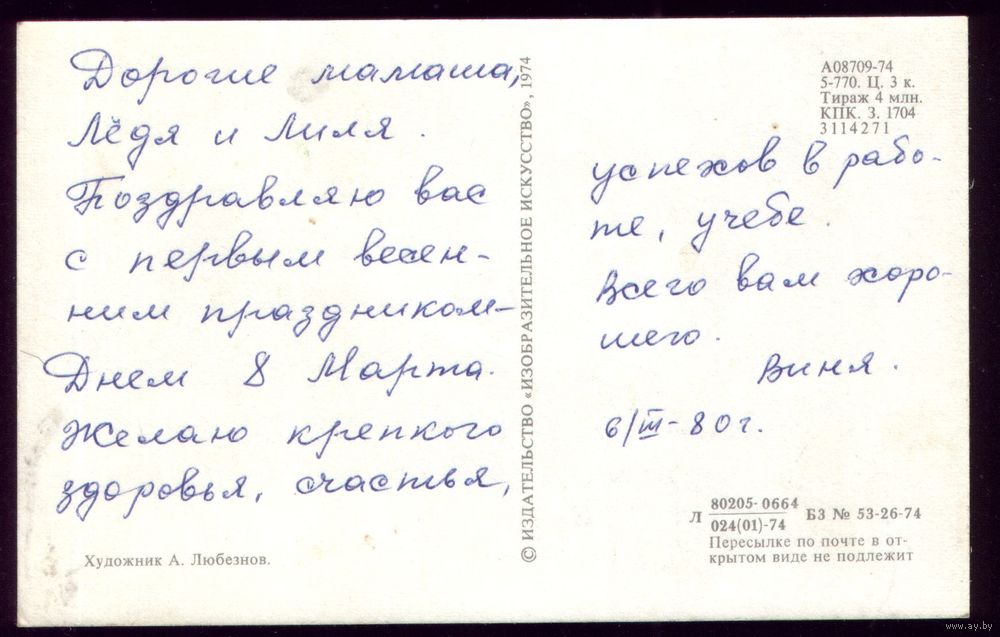 Дорогие мамаша,
Лёдя и Лиля.
Поздравляю вас
с первым весен-
ним праздником-
Днем 8 Марта.
Желаю крепкого
здоровья, счастья,
Художник А. Любезнов.
© ИЗДАТЕЛЬСТВО «ИЗОБРАЗИТЕЛЬНОЕ ИСКУССТВО», 1974
А08709-74
5-770. Ц. 3 к.
Тираж 4 млн.
КПК. З. 1704
3114271
успехов в рабо-
те, учебе.
Всего вам хоро-
шего.
Виня.
6/III-80г.
Л 80205-0664
024(01)-74 БЗ № 53-26-74
Пересылке по почте в от-
крытом виде не подлежит
www.ay.by